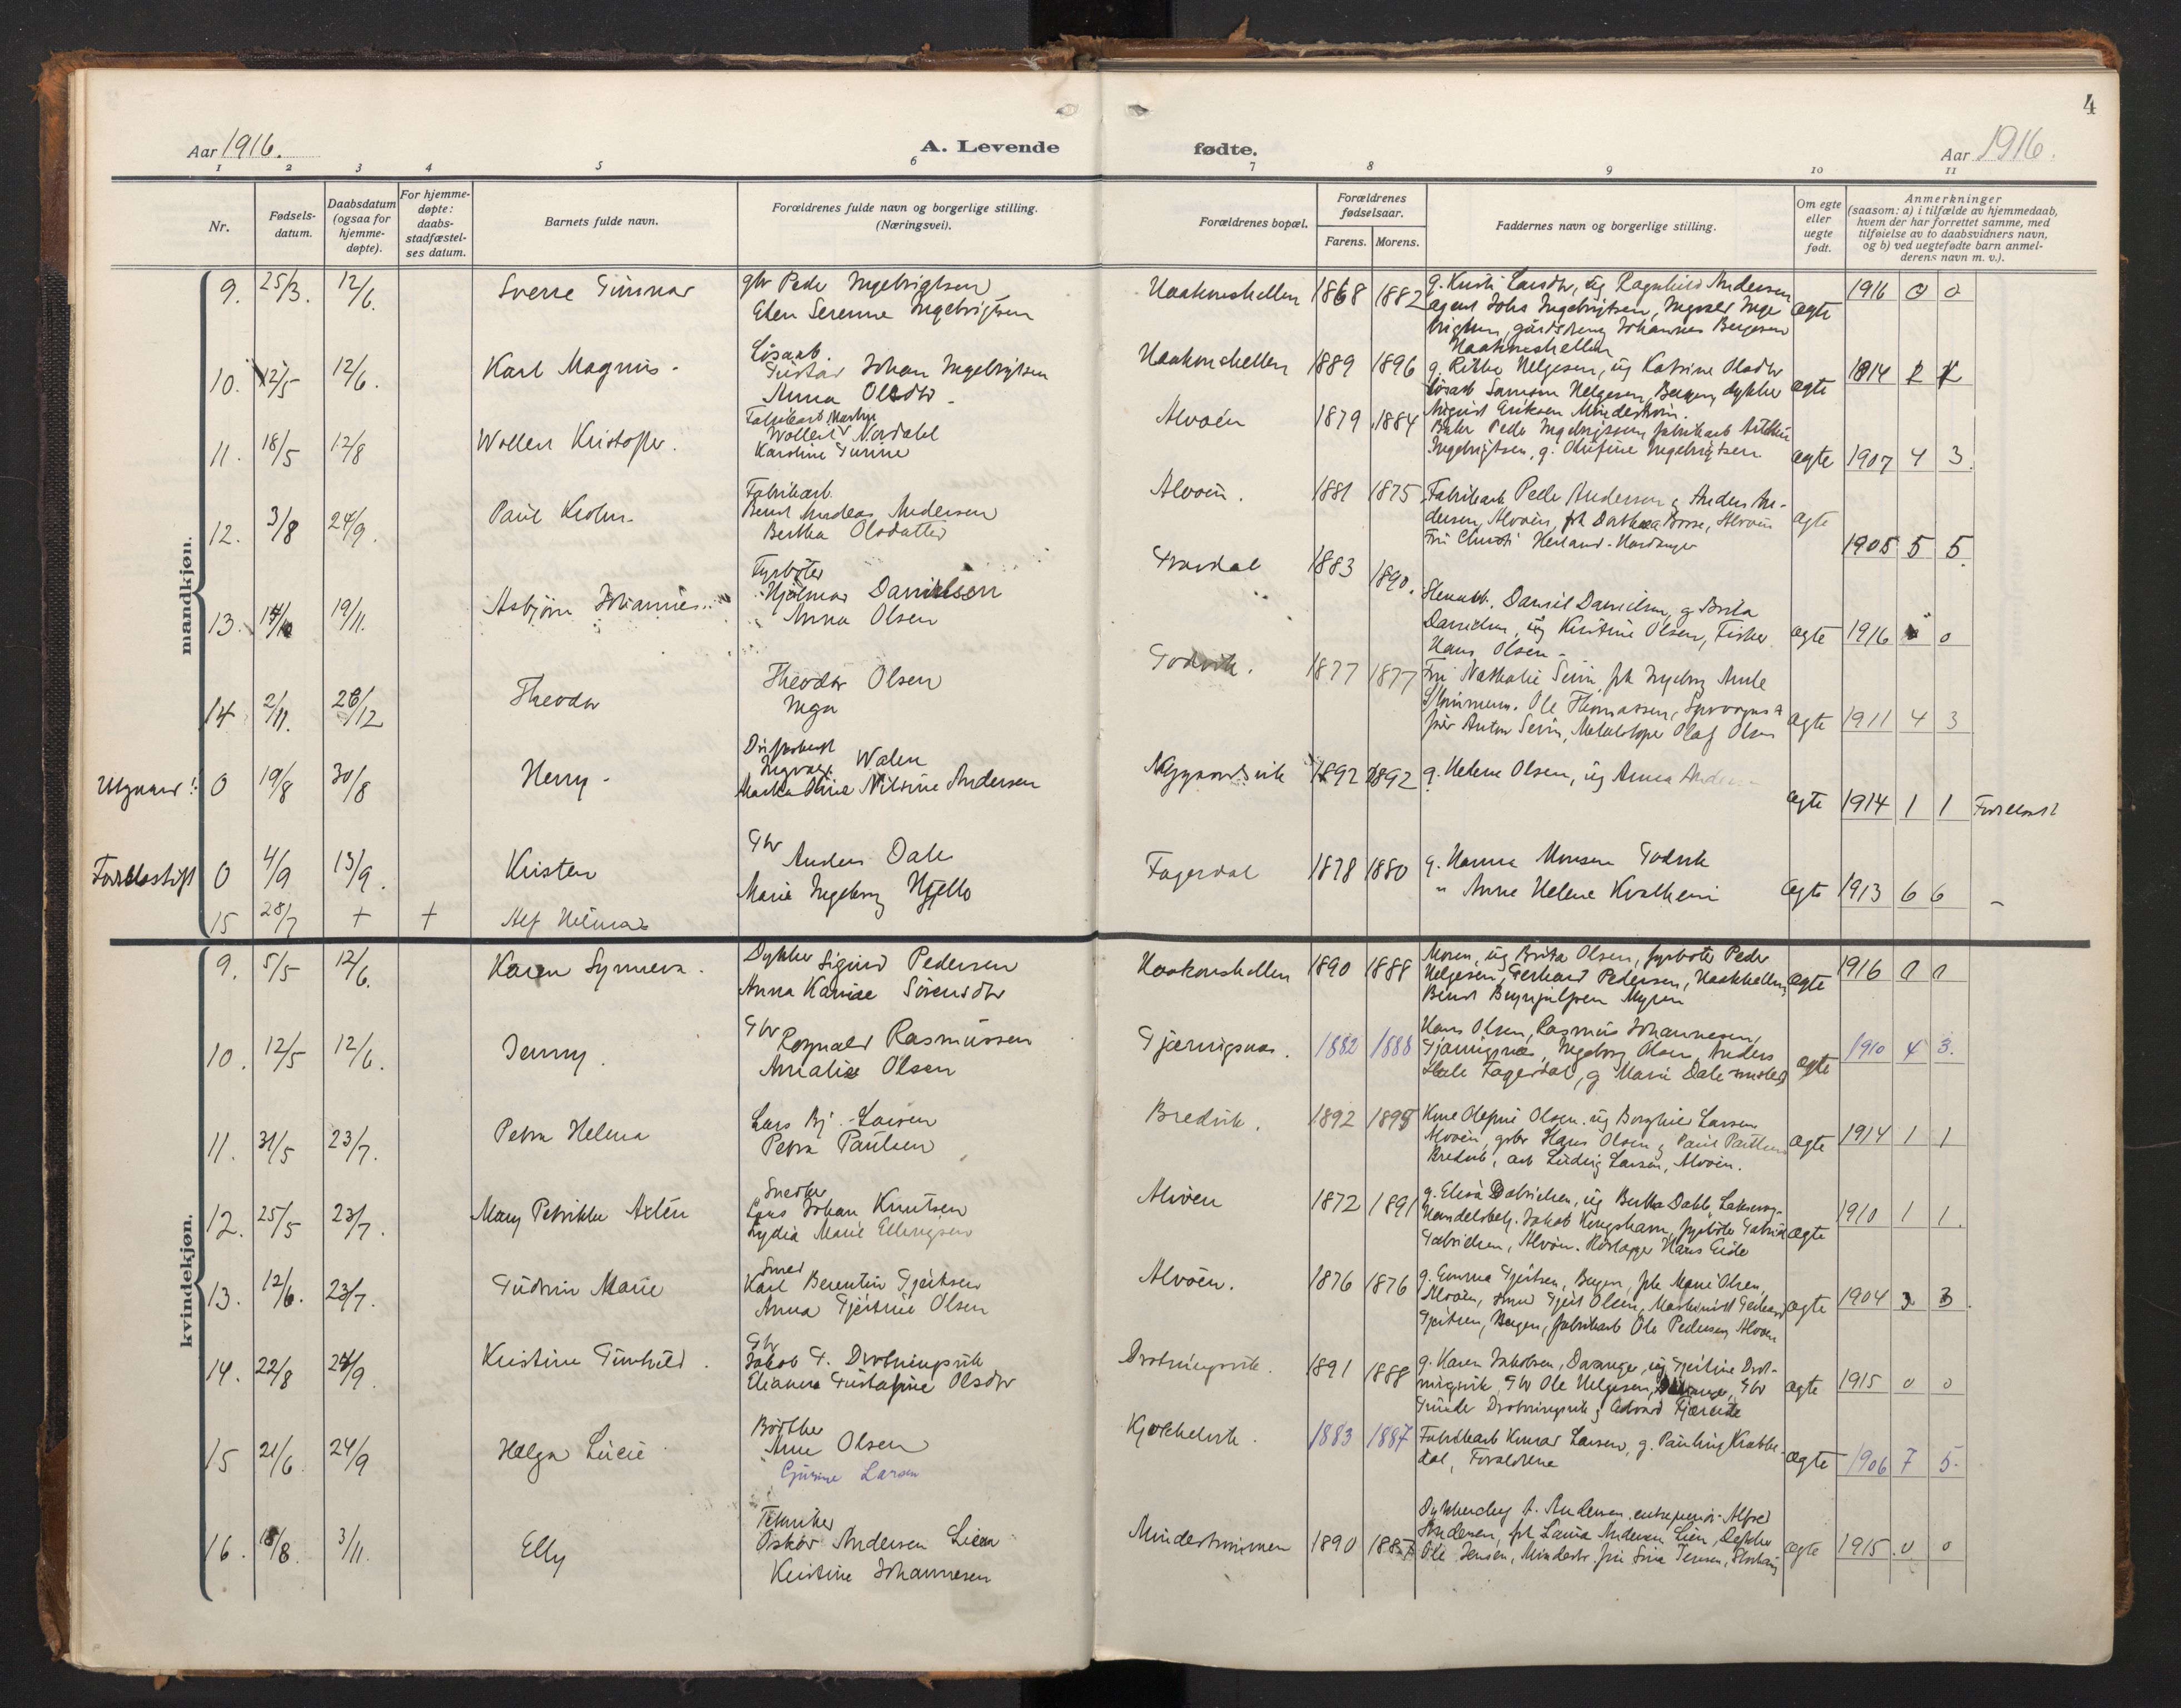 4
Aar 1916.
A. Levende
fødte.
Aar 1916.
1 2 3 4 5 6 7 8 9 10 11
Nr.
Fødsels-
datum.
Daabsdatum
(ogsaa for
hjemme-
døpte).
For hjemme-
døpte:
daabs-
stadfæstel-
ses datum.
Barnets fulde navn.
Forældrenes fulde navn og borgerlige stilling.
(Næringsvei).
Forældrenes bopæl.
Forældrenes
fødselsaar.
Farens. Morens.
Faddernes navn og borgerlige stilling.
Om egte
eller
uegte
født.
Anmerkninger
(saasom: a) i tilfælde av hjemmedaab,
hvem der har forrettet samme, med
tilføielse av to daabsvidners navn,
og b) ved uegtefødte barn anmel-
derens navn m. v.).
mandkjøn.
9. 25/3. 12/6. Sverre Gunnar
gbr Peder Ingebrigtsen
Elen Serenne Ingebrigtsen
Haakonshellen 1868 1882
g. Kirsti Larsdtr, ug Ragnhild Andersen
agent Johs Ingebrigtsen, Ingvald Inge
brigtsen, gårdsdreng Johannes Bergesen
Haakonshellen
egte 1916 0 0
10. 12/5 12/6. Karl Magnus.
Løsarb.
Gustav Johan Ingebrigtsen
Anna Olsdtr.
Haakonshellen 1889 1896
g. Rikke Helgesen, ug Katrine Olsdtr
Løsarb Samson Helgesen, Bergen, dykker
August Eriksen Mindestrøm.
egte 1914 2
11. 18/5 12/8 Wollert Kristoffer.
Fabrikarb. Martin
Wollert Nordahl
Karoline Gurine
Alvøen 1879 1884
Peder Ingebrigtsen, fabrikarb
Ingebrigtsen, g. Olufine Ingebrigtsen.
egte 1907 4 3.
12. 3/8 24/9. Paul Krohn.
Fabrikarb.
Bernt Andreas Andersen
Bertha Olsdatter
Alvøen. 1881 1875
Fabrikarb Peder Andersen & Anders An-
dersen, Alvøen, frk Dorthea Borse, Alvøen
Fru Christi Herland - Hardanger
egte 1905 5 5.
13. 19/11. Asbjørn Johannes
Fyrbøter
Hjalmar Danielsen
Anna Olsen
1883 1890.
Daniel Danielsen, g Brita
Danielsen, ug Kristine Olsen, Fisker
Hans Olsen.
egte 1916 0
14 2/11. 26/12 Theodor
Theodor Olsen
Inga
Godvik. 1877 1877
Fru Nathalie Seim, frk Ingeborg Ande
Ole Thomassen, Sporvogns
før Anton Seim, Olaf Olsen
egte 1911 4 3
Utgaard! 0 19/8 30/8 Henry.
Ingvald Walen
Martha Oline Nilsine Andersen
1892 1892
g. Helene Olsen, ug Anna Andersen
egte 1914 1 1
Fødselsstift 0 4/9 13/9. Kristen
Gbr
Anders Dale
Marie Ingeborg Hjello
Fagerdal 1878 1880
g. Hanna Monsen Godvik
" Anne Helene Kvalheim
egte 1913 6 6 -
15 28/7 + + Alf Hilmar
kvindekjøn.
9. 5/5 12/6. Karen Synneva.
Dykker Sigurd Pedersen
Anna Karine Sørensdtr
Haakonshellen 1890 1888
Moren, ug Brita Olsen, fyrbøter Peder
Helgesen, Gerhard Pedersen, Haakhellen,
Bernt Brynjulfsen Myren
egte 1916 0 0
10. 12/5 12/6. Jenny.
Gbr
Ragnald Rasmussen
Amalie Olsen
Gjæringsnes. 1882 1888
Hans Olsen, Rasmus Johannesen,
Gjæringsnes, Ingeborg Olsen, Anders
Dale Fagerdal, g Marie Dale smsteds
egte 1910 4 3.
11. 31/5 23/7. Petra Helena
Lars Bj. Larsen
Petra Paulsen
Bredvik. 1892 1895
Kone Olefine Olsen. ug Borghild Larsen
Alvøen, gbr Hans Olsen & Paul Paulsen
Bredvik, arb Ludvig Larsen, Alvøen.
egte 1914 1 1
12. 25/5 23/7. Mary Petrikke Axtén
Snedker
Lars Johan Knutsen
Lydia Marie Ellingsen
Alvöen 1872 1891
g. Elisa Gabrielsen, ug Bertha Dahle, Laksevåg
Handelsbetj. Jakob Kongshavn, fyrbøter Gabriel
Gabrielsen, Alvøen. Hans Eide
egte 1910 1 1.
13. 12/6. 23/7. Gudrun Marie
Smed
Karl Berentin Gjertsen
Anna Gjertine Olsen
Alvøen. 1876 1876
g. Emma Gjertsen, Bergen, frk Marie Olsen,
Alvøen, smed Gjert Olsen, Maskinist Gerhard
Gjertsen, Bergen, fabrikarb Ole Pedersen Alvøen
egte 1904 3 3.
14. 22/8 24/9. Kristine Gunhild.
Gbr
Jakob G. Drotningsvik
Elianna Gustafine Olsdtr
Drotningsvik. 1891 1888
g. Karen Jakobsen, Davanger, ug Gjertine Drot-
ningsvik, Gbr Ole Helgesen, Davanger, Gbr
Drotningsvik & Edvard Fjæreide
egte 1915 0 0
15 21/6 24/9 Helga Lucie
Bødker
Arne Olsen
Gurine Larsen
Kjøkkelvik. 1883 1887
Fabrikarb Konrad Larsen, g. Pauline Krabbe-
dal, Forældrene
egte 1906 7 5.
16. 18/8. 3/11. Elly
Tekniker
Oskar Andersen Lien
Kristine Johannesen
Mindestrømmen 1890
A. Andersen, entreprenør Alfred
Andersen, frk Laura Andersen Lien, Dykker
Ole Jensen, Mindestr. fru Lina Jensen,
egte 1915 0 0